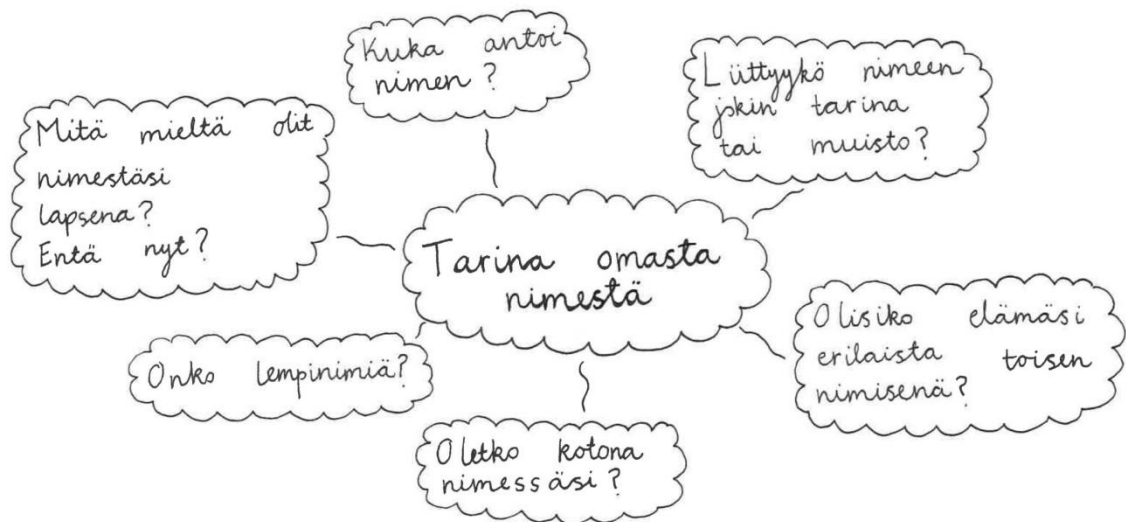 Kuka antoi
nimen?
Liittyykö nimeen
jokin tarina
tai muisto?
Mitä mieltä olit
nimestäsi
lapsena?
Entä nyt?
Tarina omasta
nimestä
Olisiko elämäsi
erilaista toisen
nimisenä?
Onko lempinimiä?
Oletko kotona
nimessäsi?